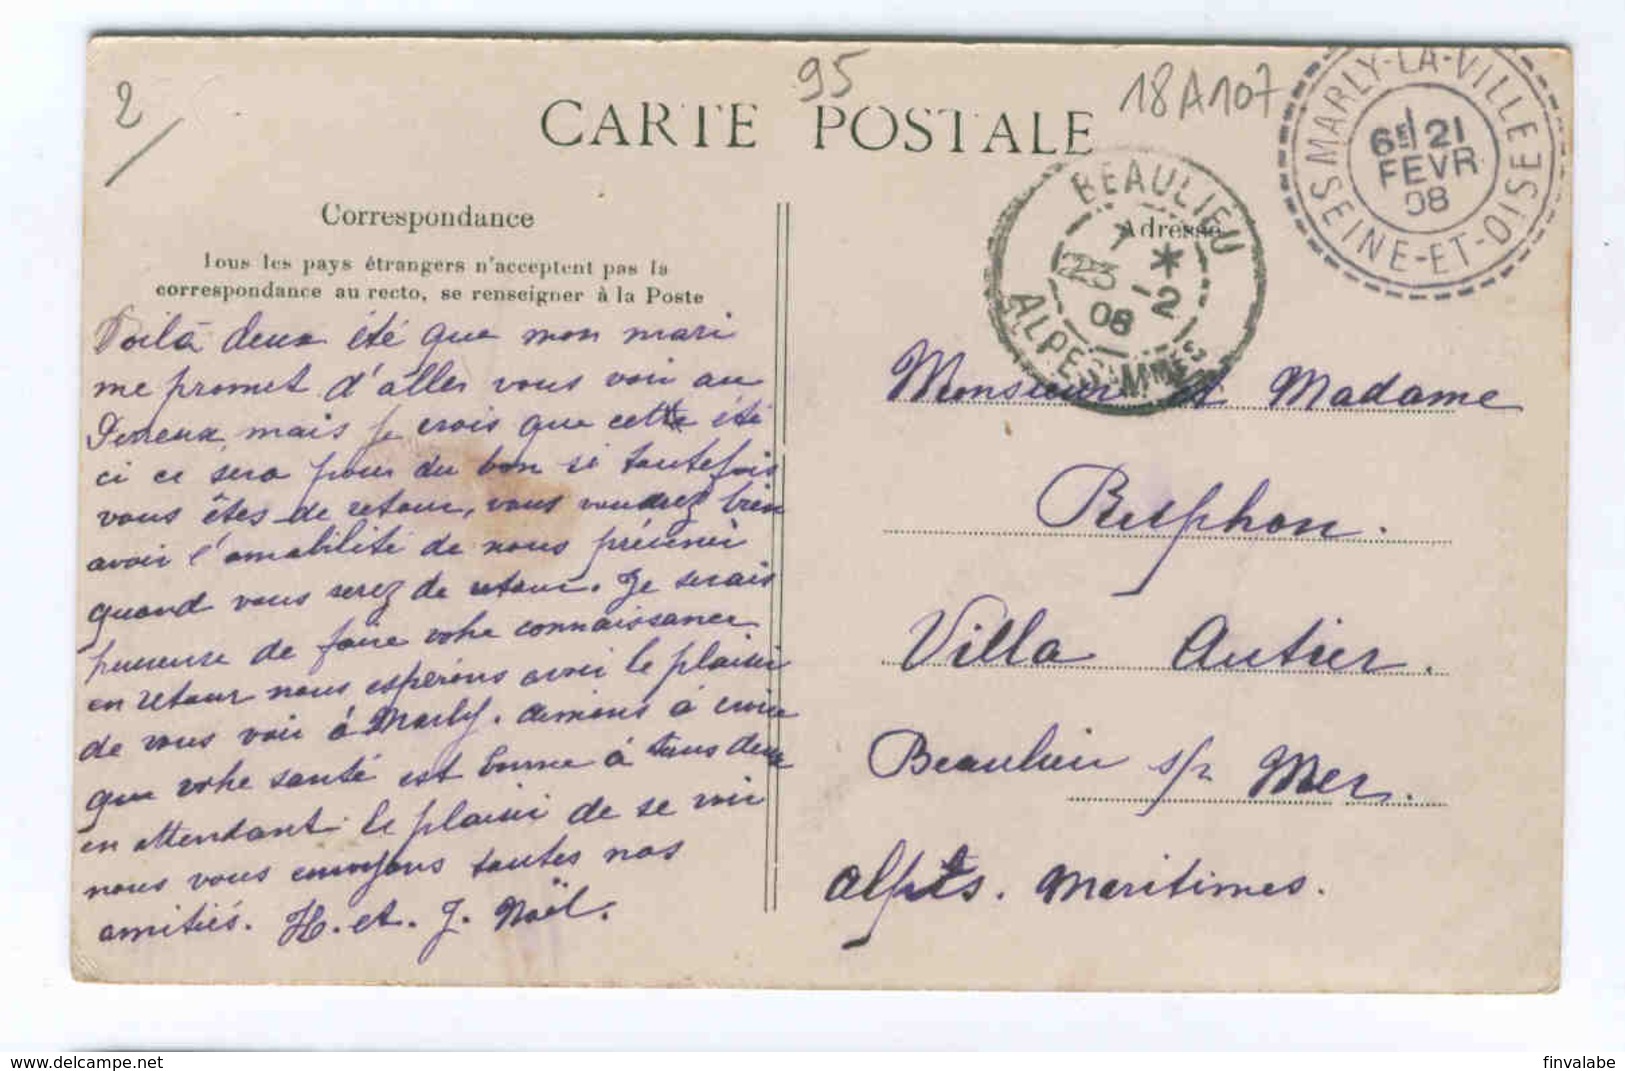 2
95
18A107
CARTE POSTALE
MARLY-LA-VILLE
6E 21
FEVR
08
SEINE-ET-OISE
BEAULIEU
7 *
23 -2
08
ALPES MMES
Correspondance
Adresse
Tous les pays étrangers n'acceptent pas la
correspondance au recto, se renseigner à la Poste
Voilà deux été que mon mari
me promet d'aller vous voir au
Perreux, mais je crois que cette été
ci ce sera pour du bon si toutefois
vous êtes de retour, vous voudrez bien
avoir l'amabilité de nous prévenir
quand vous serez de retour. Je serais
heureuse de faire votre connaissance
en retour nous espérons avoir le plaisir
de vous voir à Marly. aimons à croire
que votre santé est bonne à tous deux
en attendant le plaisir de se voir
nous vous envoyons toutes nos
amitiés. H. et. J. Noël.
Monsieur et Madame
Villa Autier.
Beaulieu s/r Mer.
Alpes. Maritimes.
finvalabe